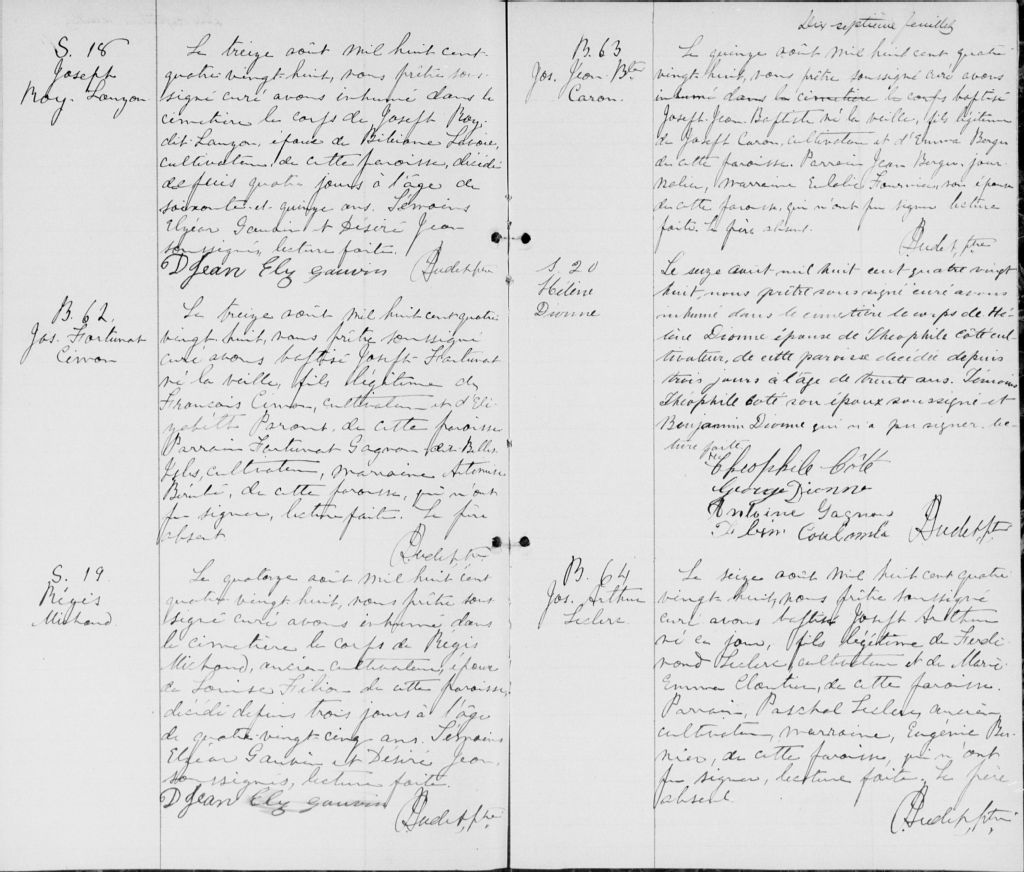 S. 18
Joseph
Roy-Lauzon
Le treize août mil huit cent
quatre vingt-huit, nous prêtre sous-
signé curé avons inhumé dans le
cimetière le corps de Joseph Roy
dit Lauzon, époux de
cultivateur, de cette paroisse, décédé
depuis quatre jours à l'âge de
soixante-et-quinze ans. Témoins
Elzéar Gauvin et Désiré Jean
soussignés, lecture faite.
D Jean Elz gauvin Audet, ptre
B. 62.
Jos. Fortunat
Cimon
Le treize août mil huit cent quatre
vingt-huit, nous prêtre soussigné
curé avons baptisé Joseph Fortunat
né la veille, fils légitime de
François Cimon, cultivateur et d'Eli-
zabeth Parent de cette paroisse
Parrain Fortunat Gagnon
cultivateur, marraine Artémise
Bérubé, de cette paroisse, qui n'ont
pu signer, lecture faite. Le père
absent
Audet, ptre
S. 19
Régis
Michaud
Le quatorze août mil huit cent
quatre vingt-huit, nous prêtre sous-
signé curé avons inhumé dans
le cimetière le corps de Régis
Michaud, ancien cultivateur, époux
de Louise Filion de cette paroisse,
décédé depuis trois jours à l'âge
de quatre-vingt-cinq ans. Témoins
Elzéar Gauvin et Désiré Jean
soussignés, lecture faite.
D Jean Elz gauvin
Audet, ptre
Dix-septième feuillet
B. 63
Jos. Jean-Bte
Caron.
Le quinze août mil huit cent quatre
vingt-huit, nous prêtre soussigné curé avons
inhumé dans le cimetière le corps baptisé
Joseph-Jean-Baptiste né la veille, fils légitime
de Joseph Caron, cultivateur et d'Emma Berger
de cette paroisse. Parrain Jean Berger, jour-
nalier, marraine Eulalie Fournier, son épouse
de cette paroisse, qui n'ont pu signer lecture
faite. Le père absent.
Audet, ptre
S. 20
Hélène
Dionne
Le seize aout mil huit cent quatre vingt
huit, nous prêtre soussigné curé avons
inhumé dans le cimetière le corps de Hé-
lène Dionne épouse de Théophile Côté cul-
tivateur, de cette paroisse décédée depuis
trois jours à l'âge de trente ans. Témoins
Théophile Coté son époux soussigné et
Benjamin Dionne qui n'a pu signer, lec-
ture faite
Theophile Côté
George Dionne
Antoine Gagnon
Coulombe Audet, ptre
B. 64
Jos. Arthur
Leclerc
Le seize août mil huit cent quatre
vingt-huit, nous prêtre soussigné
curé avons baptisé Joseph Arthur
né ce jour, fils légitime de Ferdi-
nand Leclerc, cultivateur et de Marie
Emma Cloutier, de cette paroisse.
Parrain, Paschal Leclerc, ancien
cultivateur, marraine, Eugénie Ber-
nier, de cette paroisse, qui n'ont
pu signer, lecture faite. Le père
absent.
Audet, ptre